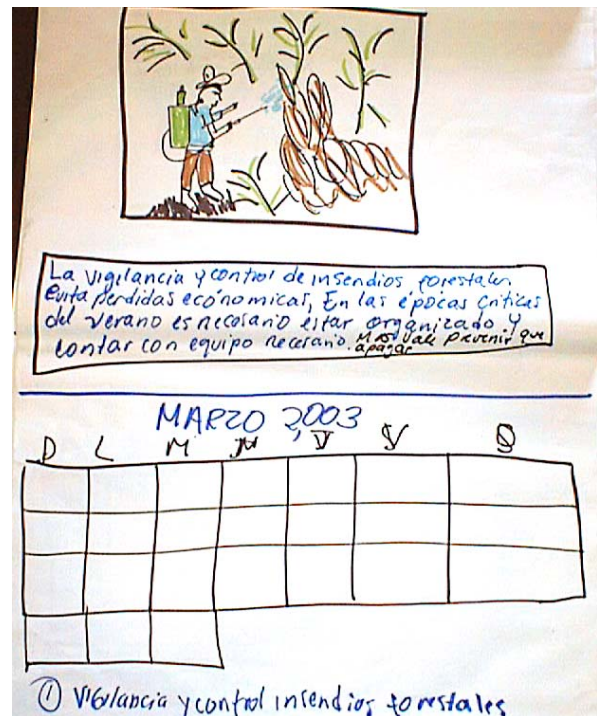 La vigilancia y control de insendios forestales
Evita perdidas económicas, En las épocas criticas
del verano es necesario estar organizado y
contar con equipo necesario. Mas vale prevenir que
apagar
MARZO 2003
D L M M J V S
① Vigilancia y control insendios forestales